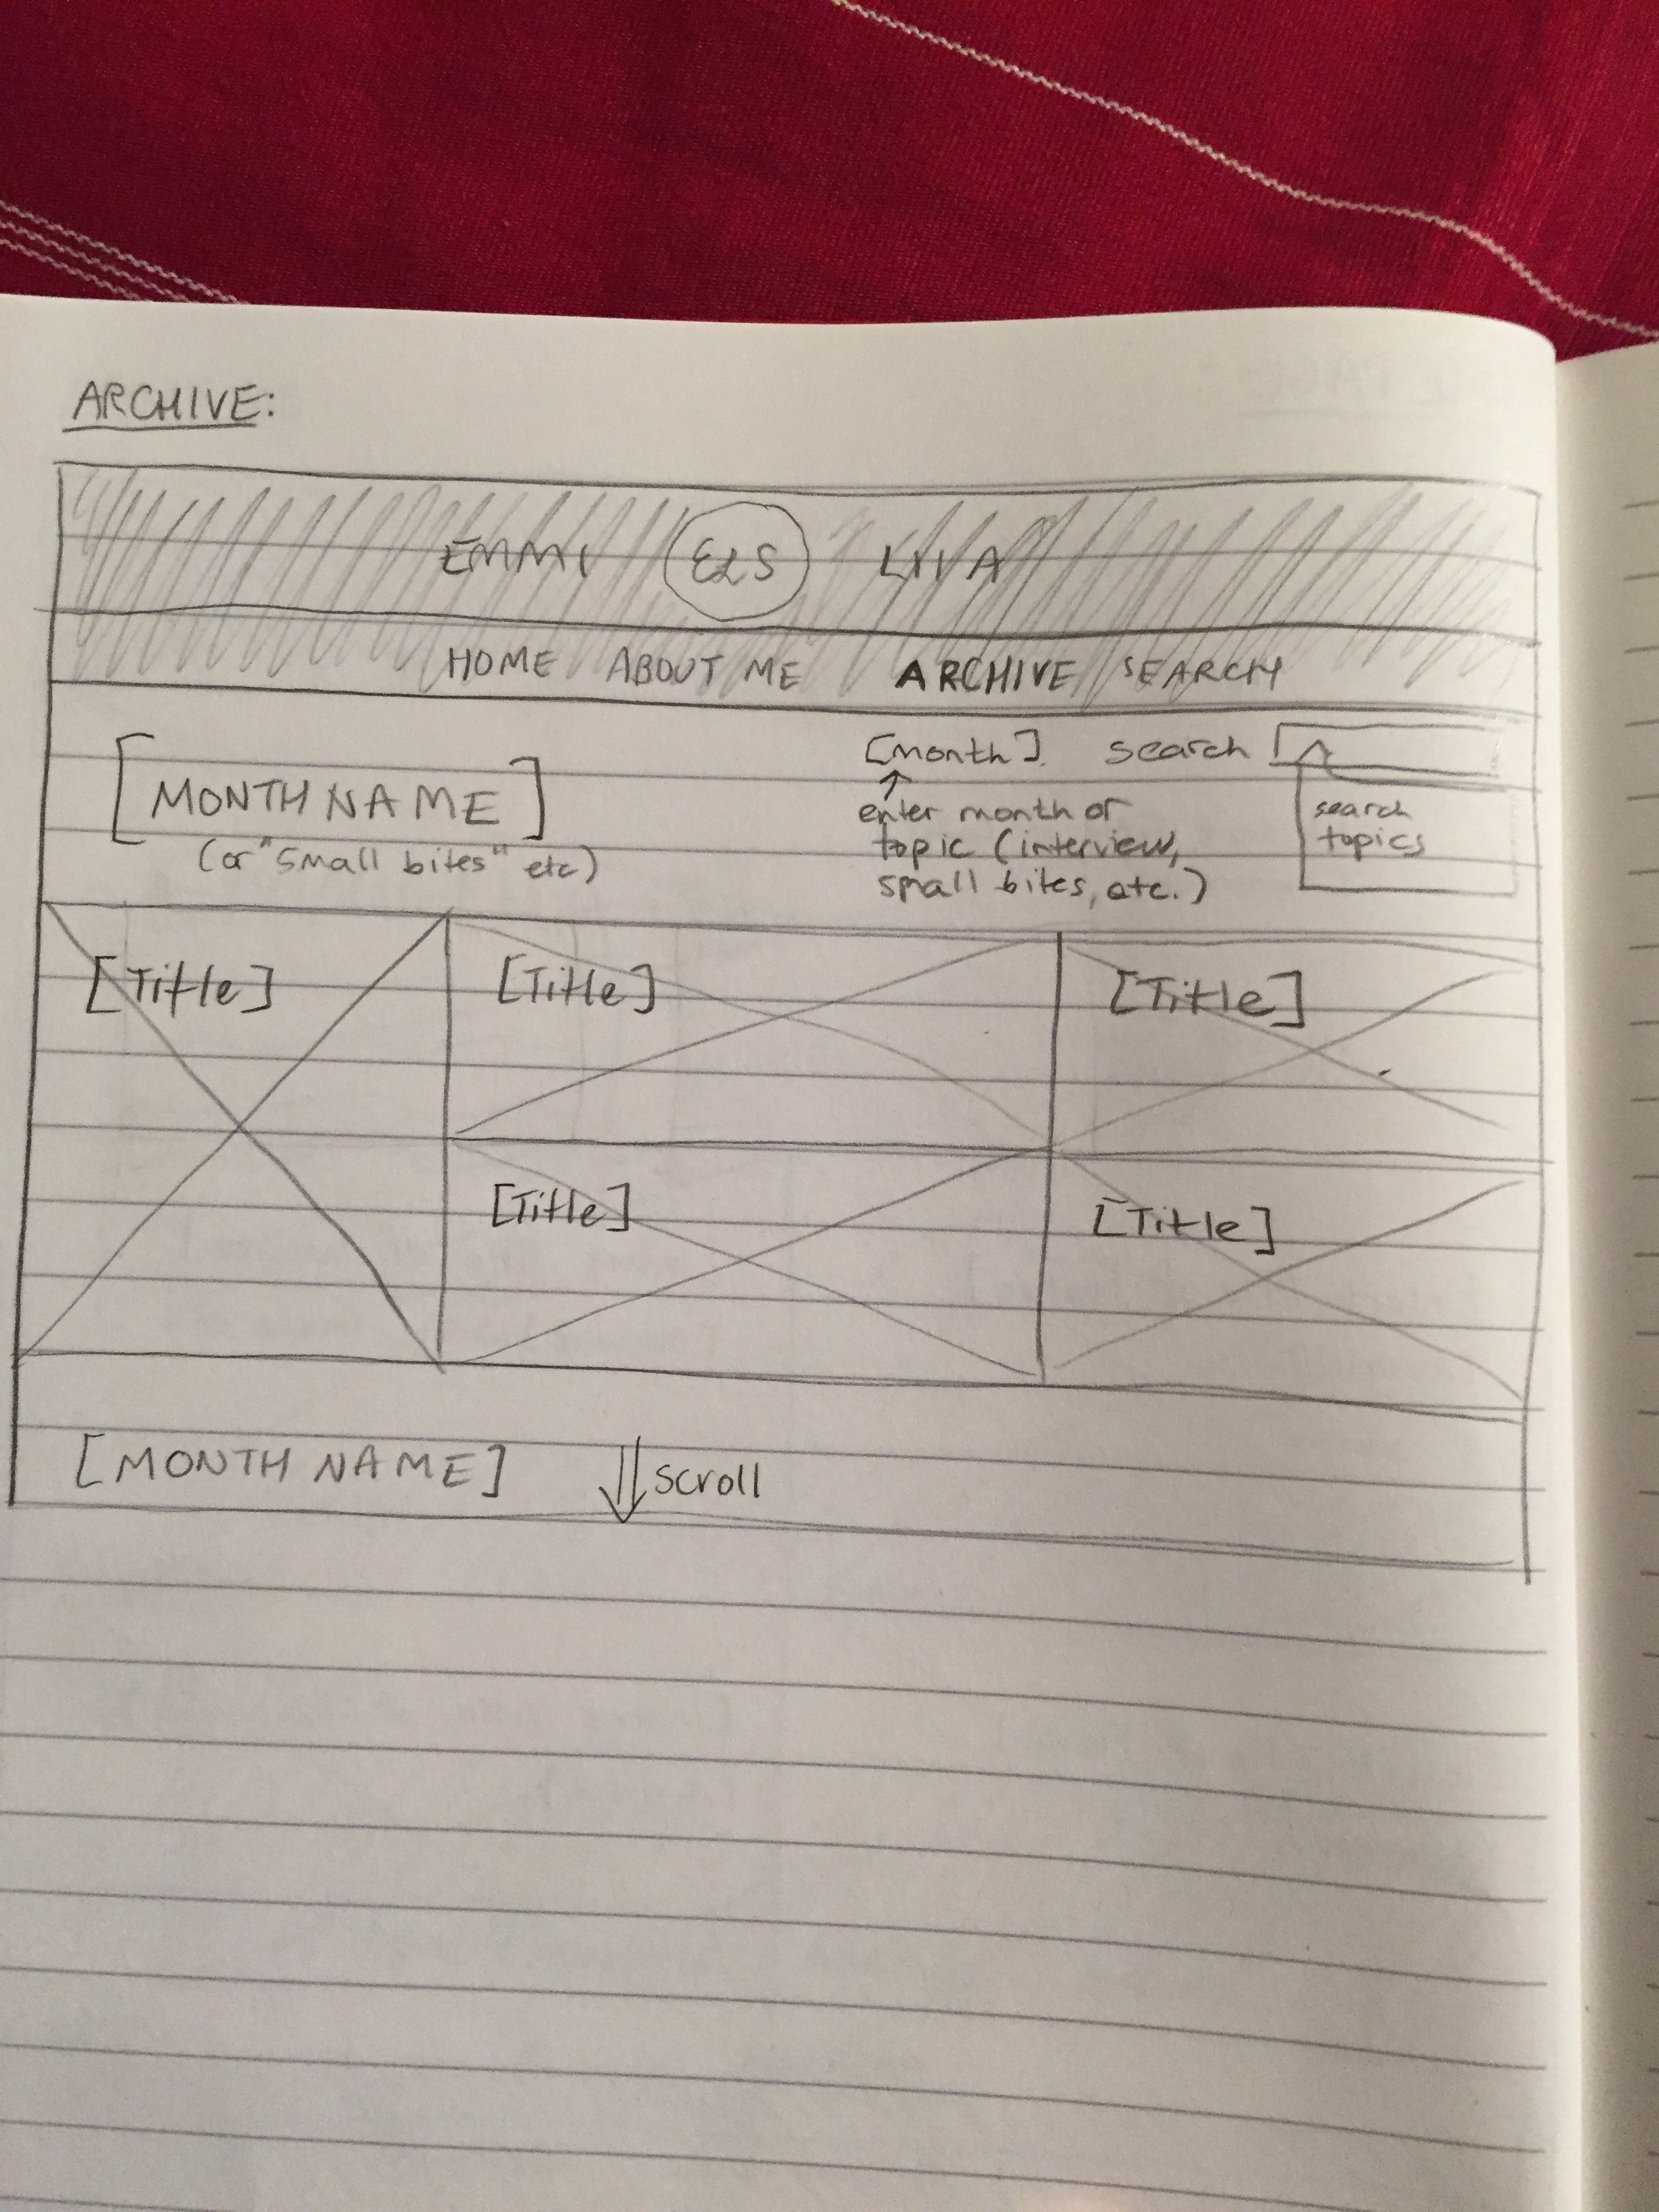 ARCHIVE:
EMMI ELS LIIA
HOME ABOUT ME ARCHIVE SEARCH
[MONTH NAME]
(or "Small bites" etc)
[month] search
enter month or
topic (interview,
small bites, etc.)
search
topics
[Title] [Title] [Title]
[Title] [Title]
[MONTH NAME] scroll